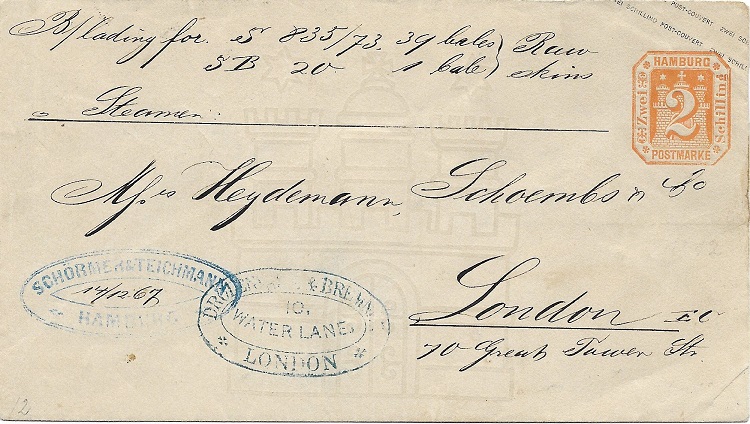 EI SCHILLING POST-COUVERT ZWEI SCHILLING POST-COUVERT ZWEI SC
B/lading for. S 835/73. 39 bales } Raw
SB 20. 1 bale } skins
Steamer
HAMBURG
Zwei 2 Schilling
POSTMARKE
M/rs Heydemann, Schoembs & Co
London EC
70 Great Tower Str.
SCHÖRMER & TEICHMANN
14/12 67
HAMBURG
& BREM
10,
WATER LANE,
LONDON
2